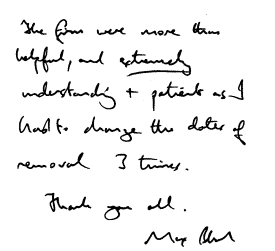 The firm were more than
helpful, and extremely
understanding + patient as I
had to change the dates of
removal 3 times.
Thank you all.